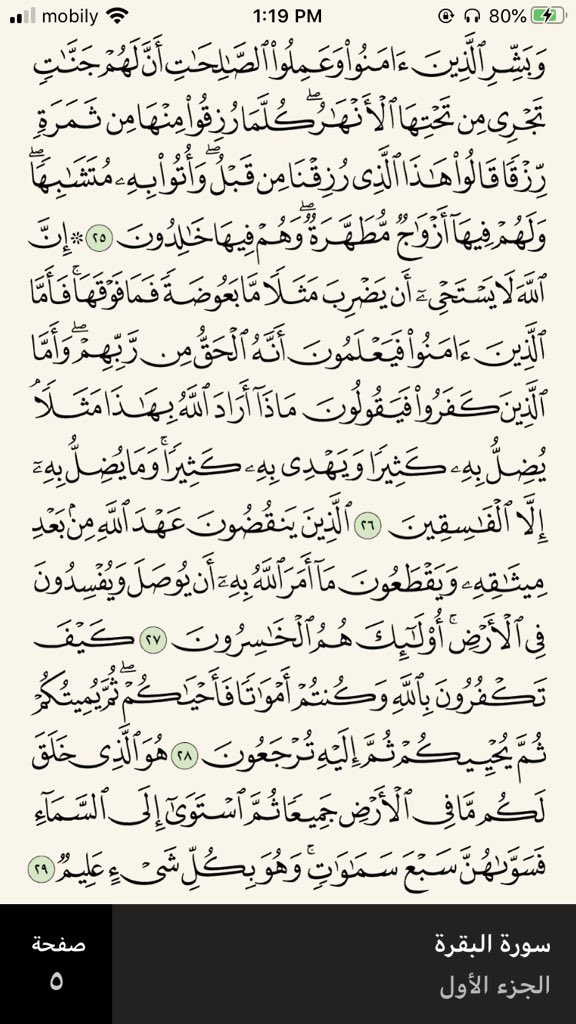 mobily 1:19 PM 80%
وَبَشِّرِ ٱلَّذِينَ ءَامَنُوا۟ وَعَمِلُوا۟ ٱلصَّـٰلِحَـٰتِ أَنَّ لَهُمْ جَنَّـٰتٍ
تَجْرِى مِن تَحْتِهَا ٱلْأَنْهَـٰرُ ۖ كُلَّمَا رُزِقُوا۟ مِنْهَا مِن ثَمَرَةٍ
رِّزْقًا قَالُوا۟ هَـٰذَا ٱلَّذِى رُزِقْنَا مِن قَبْلُ ۖ وَأُتُوا۟ بِهِۦ مُتَشَـٰبِهًا ۖ
وَلَهُمْ فِيهَآ أَزْوَٰجٌ مُّطَهَّرَةٌ ۖ وَهُمْ فِيهَا خَـٰلِدُونَ ٢٥ ۞ إِنَّ
ٱللَّهَ لَا يَسْتَحْىِۦٓ أَن يَضْرِبَ مَثَلًا مَّا بَعُوضَةً فَمَا فَوْقَهَا ۚ فَأَمَّا
ٱلَّذِينَ ءَامَنُوا۟ فَيَعْلَمُونَ أَنَّهُ ٱلْحَقُّ مِن رَّبِّهِمْ ۖ وَأَمَّا
ٱلَّذِينَ كَفَرُوا۟ فَيَقُولُونَ مَاذَآ أَرَادَ ٱللَّهُ بِهَـٰذَا مَثَلًا ۘ
يُضِلُّ بِهِۦ كَثِيرًا وَيَهْدِى بِهِۦ كَثِيرًا ۚ وَمَا يُضِلُّ بِهِۦٓ
إِلَّا ٱلْفَـٰسِقِينَ ٢٦ ٱلَّذِينَ يَنقُضُونَ عَهْدَ ٱللَّهِ مِنۢ بَعْدِ
مِيثَـٰقِهِۦ وَيَقْطَعُونَ مَآ أَمَرَ ٱللَّهُ بِهِۦٓ أَن يُوصَلَ وَيُفْسِدُونَ
فِى ٱلْأَرْضِ ۚ أُو۟لَـٰٓئِكَ هُمُ ٱلْخَـٰسِرُونَ ٢٧ كَيْفَ
تَكْفُرُونَ بِٱللَّهِ وَكُنتُمْ أَمْوَٰتًا فَأَحْيَـٰكُمْ ۖ ثُمَّ يُمِيتُكُمْ
ثُمَّ يُحْيِيكُمْ ثُمَّ إِلَيْهِ تُرْجَعُونَ ٢٨ هُوَ ٱلَّذِى خَلَقَ
لَكُم مَّا فِى ٱلْأَرْضِ جَمِيعًا ثُمَّ ٱسْتَوَىٰٓ إِلَى ٱلسَّمَآءِ
فَسَوَّىٰهُنَّ سَبْعَ سَمَـٰوَٰتٍ ۚ وَهُوَ بِكُلِّ شَىْءٍ عَلِيمٌ ٢٩
سورة البقرة صفحة
الجزء الأول ٥